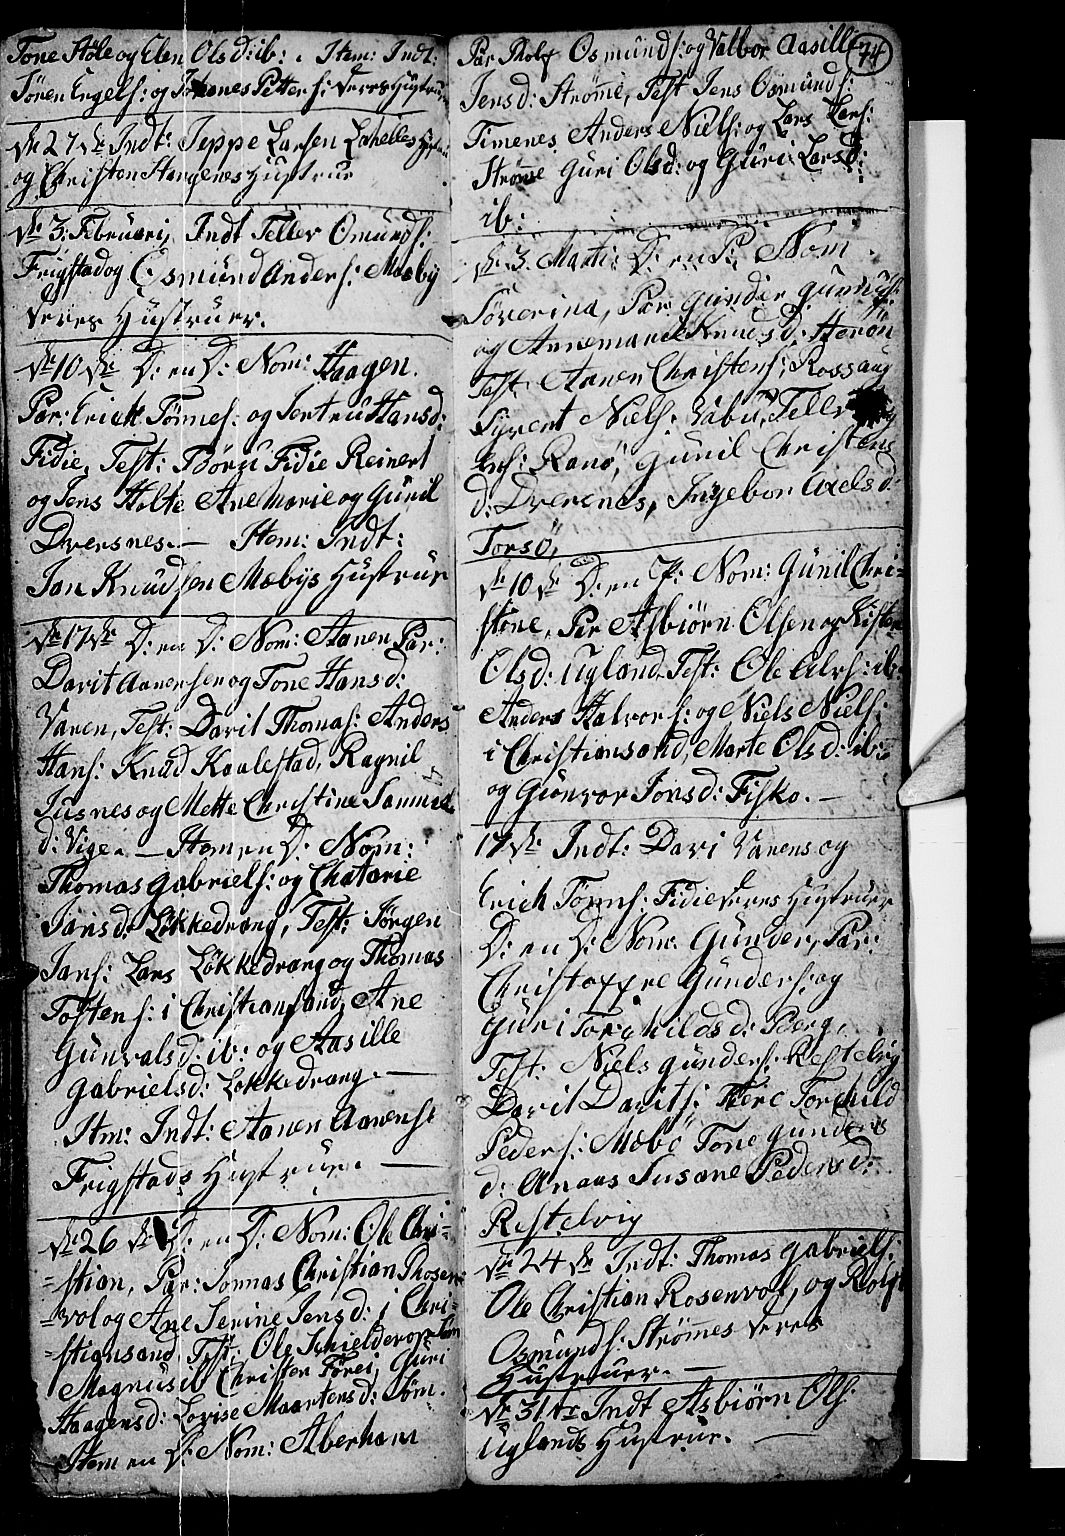 Tone Støle og Elen Olsd: ib: . Item: Indt:
Tören Engels: og Johanes Petters: deres Hustruer
dn 27 de Indt: Jeppe Larsen Lahelles
og Christen Stangenes Hustrue
dn 3: Februarij Indt Tellev Omunds:
Frigstad og Osmund Anders: Mæby
deres Hustruer.
dn 10 de D: en D: Nom: Haagen.
Par: Erich Tönnes: og Jertru Hansd:
Fidie, Test: Börgi Fidie Reinert
og Jens Holte Ane Marie og Gunil
Dversnes. — Item: Indt:
Jan Knudsen Mæbys Hustrue
dn 17 de D: en D: Nom: Aanen Par:
Davit Aanensen og Tone Hansd:
Varen, Test: Davil Thomas: Anders
Hans: Knud Kaalestad, Ragnil
Jusnes og Mette Christine Samuel
d: Vige. — Item en D: Nom:
Thomas Gabriels: og Chatarie
Jansd: Løkkedrang, Test: Jörgen
Jans: Lars Løkkedrang og Thomas
Tostens: i Christiansand, Ane
Gunvalsd: ib: og Aasille
Gabrielsd: Løkkedrang. —
Itm: Indt: Aanen Aanens:
Frigstads Hustrue. —
dn 26 de D: en D: Nom: Ole Chri=
=stian, Par: Jonnas Christian Rosen=
=vol og Ane Serine Jensd: i Chri=
=stiansand Test: Ole Schielderop
Magnus ib Christen Förei, Guri
Haagensd: Lovise Maartensd:
Item en D: Nom: Aberham
74
Par Rolf Osmunds: og Valbor Aasille
Jensd: Strømme, Test Jens Osmunds:
Timenes Anders Niels: og Lars Lars:
Strømme Guri Olsd: og Guri Larsd:
ib:
dn 3 Marti: D: en P: Nom
Söverina, Par Gunder Gunnufs:
og Annemarie Knudsd: Herön
Test. Aanen Christens: Rossaug
Syvert Niels: Vabu, Tellev
Ens: Ranö, Gunil Christens
d: Dversnes, Ingebor Axelsd:
Torsö,
dn 10 de D: en P: Nom: Gunil Chri=
stone, Par Asbiörn Olsen og Kisten
Olsd: Ugland Test: Ole Alvs: ib:
Anders Halvors: og Niels Niels:
i Christiansand, Marte Olsd: ib:
og Gunvor Jonsd: Fisko. —
17 de: Indt: Davi Varens og
Erich Tönns: Fidie deres Hustruer
D: en D: Nom: Gunder, Par:
Christoffre Gunders: og
Guri Torchildsd: Berg,
Test: Niels Gunders: Restelvig
Davit Davits: Torchild
Peders: Mæbö Tone Gunders
d: Anaas Susane Pedersd:
Restelvig
dn 24 de Indt: Thomas Gabriels:
Ole Christian Rosenvol, og Rolf
Osmunds: Strømmes deres
Hustruer. —
dn 31 te Indt Asbiörn Ols:
Uglands Hustrue. —